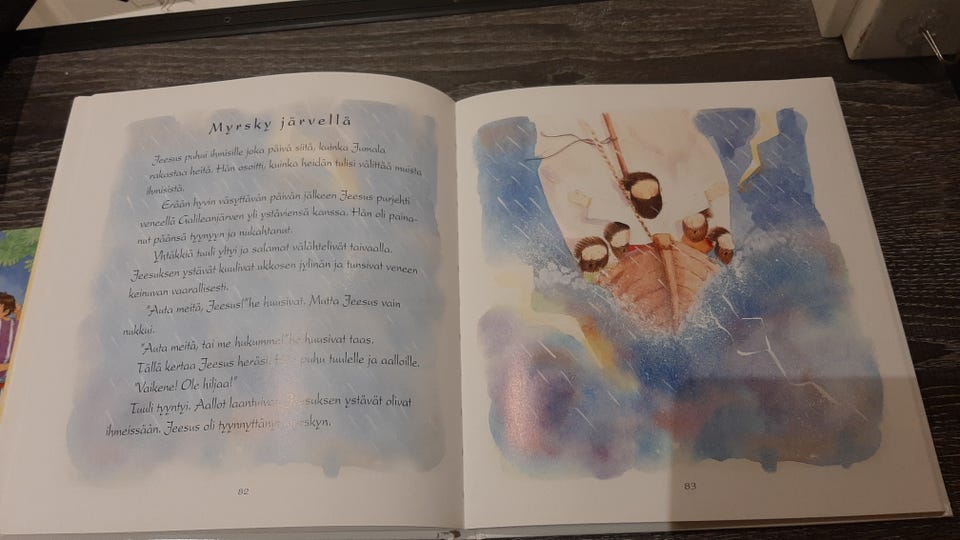 Myrsky järvellä
Jeesus puhui ihmisille joka päivä siitä, kuinka Jumala
rakastaa heitä. Hän osoitti, kuinka heidän tulisi välittää muista
ihmisistä.
Erään hyvin väsyttävän päivän jälkeen Jeesus purjehti
veneellä Galileanjärven yli ystäviensä kanssa. Hän oli paina-
nut päänsä tyynyyn ja nukahtanut.
Yhtäkkiä tuuli yltyi ja salamat välähtelivät taivaalla.
Jeesuksen ystävät kuulivat ukkosen jylinän ja tunsivat veneen
keinuvan vaarallisesti.
"Auta meitä, Jeesus!" he huusivat. Mutta Jeesus vain
nukkui.
"Auta meitä, tai me hukumme!" he huusivat taas.
Tällä kertaa Jeesus heräsi. Hän puhui tuulelle ja aalloille.
"Vaikene! Ole hiljaa!"
Tuuli tyyntyi. Aallot laantuivat. Jeesuksen ystävät olivat
ihmeissään. Jeesus oli tyynnyttänyt myrskyn.
82
83